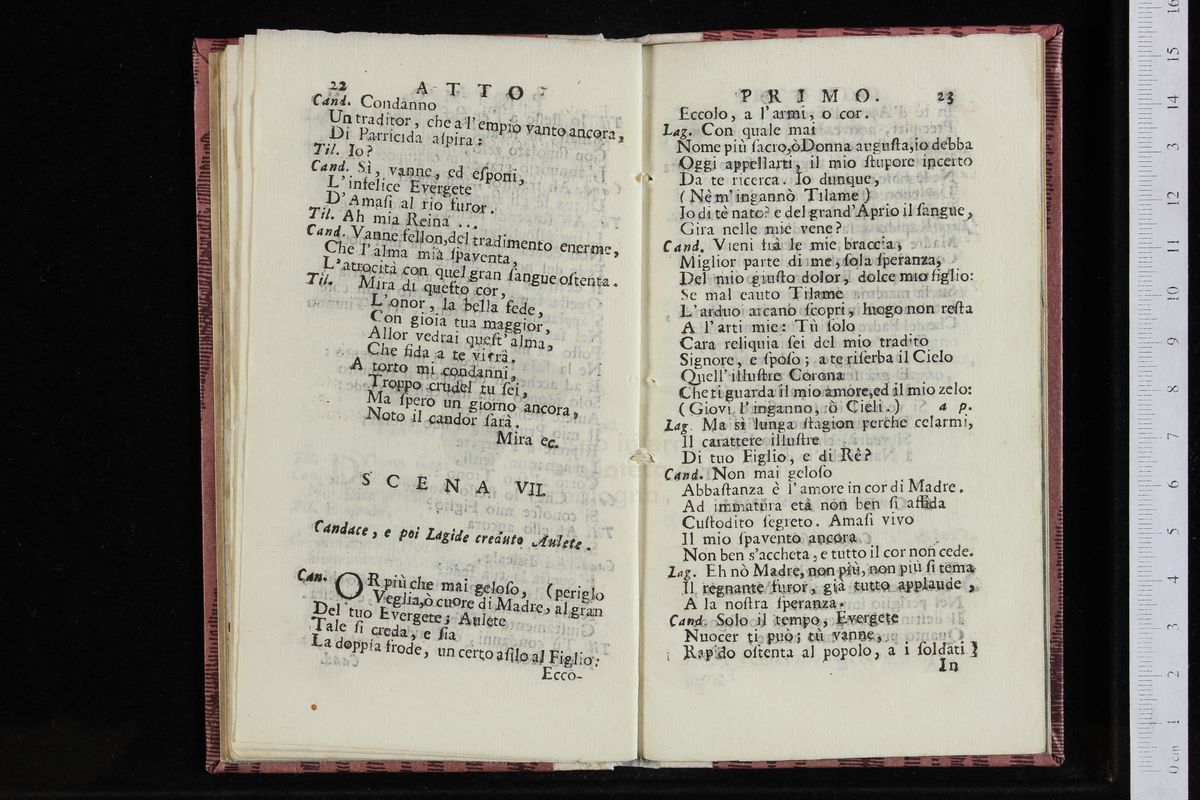 22 ATTO
Cand. Condanno
Un traditor, che a l'empio vanto ancora,
Di Parricida aſpira:
Til. Io?
Cand. Sì, vanne, ed eſponi,
L'infelice Evergete
D'Amaſi al rio furor.
Til. Ah mia Reina ...
Cand. Vanne fellon, del tradimento enorme,
Che l'alma mia ſpaventa,
L'atrocità con quel gran ſangue oſtenta.
Til. Mira di queſto cor,
L'onor, la bella fede,
Con gioia tua maggior,
Allor vedrai queſt'alma,
Che fida a te vivrà.
A torto mi condanni,
Troppo crudel tu ſei,
Ma ſpero un giorno ancora,
Noto il candor ſarà.
Mira ec.
SCENA VII.
Candace, e poi Lagide creduto Aulete.
Can. OR più che mai geloſo, (periglo
Veglia, ò cuore di Madre, al gran
Del tuo Evergete; Aulete
Tale ſi creda, e ſia
La doppia frode, un certo aſilo al Figlio:
Ecco-
PRIMO. 23
Eccolo, a l'armi, o cor.
Lag. Con quale mai
Nome più ſacro, ò Donna auguſta, io debba
Oggi appellarti, il mio ſtupore incerto
Da te ricerca. Io dunque,
(Nè m'ingannò Tilame)
Io di tè nato? e del grand'Aprio il ſangue,
Gira nelle mie vene?
Cand. Vieni frà le mie braccia,
Miglior parte di me, ſola ſperanza,
Del mio giuſto dolor, dolce mio figlio:
Se mal cauto Tilame
L'arduo arcano ſcoprì, luogo non reſta
A l'arti mie: Tù ſolo
Cara reliquia ſei del mio tradito
Signore, e ſpoſo; a te riſerba il Cielo
Quell'illuſtre Corona
Che ti guarda il mio amore, ed il mio zelo:
(Giovi l'inganno, ò Cieli.) a p.
Lag. Ma sì lunga ſtagion perche celarmi,
Il carattere illuſtre
Di tuo Figlio, e di Rè?
Cand. Non mai geloſo
Abbaſtanza è l'amore in cor di Madre.
Ad immatura età non ben ſi affida
Cuſtodito ſegreto. Amaſi vivo
Il mio ſpavento ancora
Non ben s'accheta, e tutto il cor non cede.
Lag. Eh nò Madre, non più, non più ſi tema
Il regnante furor, già tutto applaude,
A la noſtra ſperanza.
Cand. Solo il tempo, Evergete
Nuocer ti può; tù vanne,
Rapido oſtenta al popolo, a i ſoldati
In